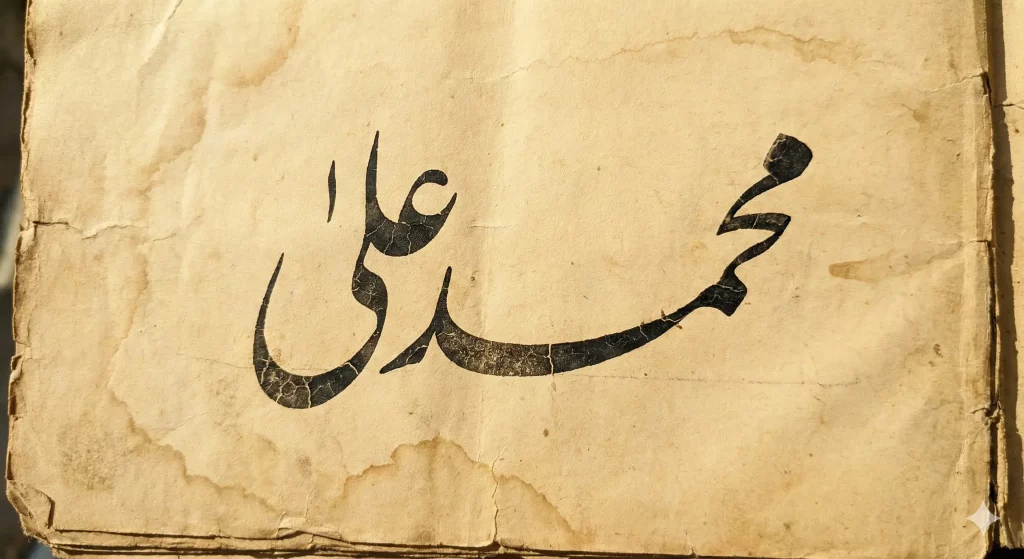 محمد علی